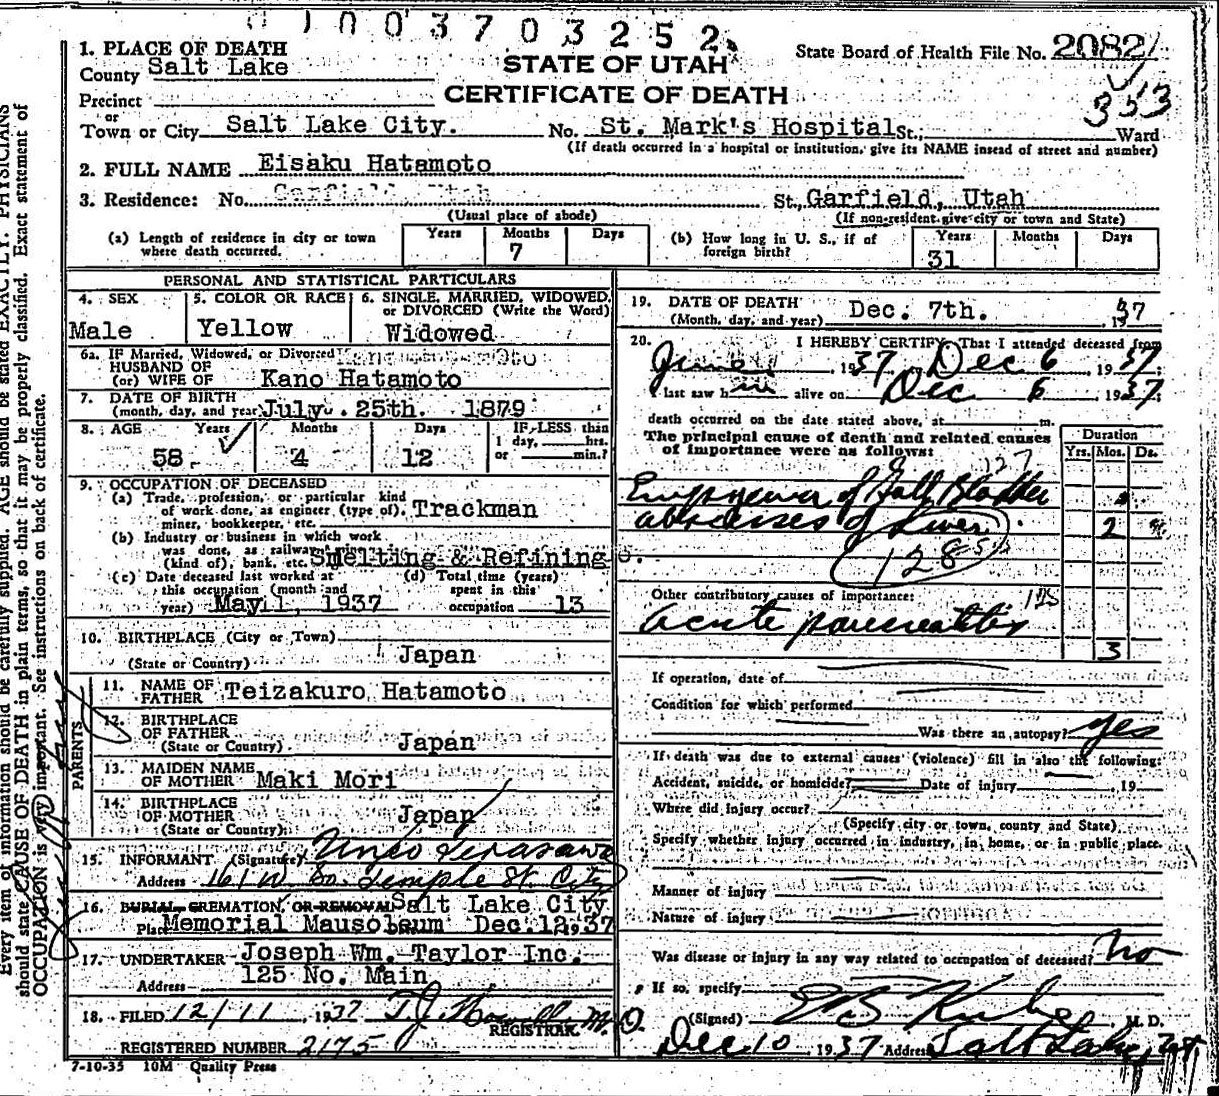 1003703252
1. PLACE OF DEATH
County Salt Lake
STATE OF UTAH
State Board of Health File No. 2082
Precinct
CERTIFICATE OF DEATH
353
or
Town or City Salt Lake City. No. St. Mark's Hospital St.; Ward
(If death occurred in a hospital or institution, give its NAME insead of street and number)
2. FULL NAME Eisaku Hatamoto
3. Residence: No. Garfield, Utah St., Garfield, Utah
(Usual place of abode) (If non-resident give city or town and State)
(a) Length of residence in city or town where death occurred. Years Months 7 Days
(b) How long in U. S., if of foreign birth? Years 31 Months Days
PERSONAL AND STATISTICAL PARTICULARS
4. SEX Male
5. COLOR OR RACE Yellow
6. SINGLE, MARRIED, WIDOWED, or DIVORCED (Write the Word) Widowed
6a. IF Married, Widowed, or Divorced
HUSBAND OF
(or) WIFE OF Kano Hatamoto
7. DATE OF BIRTH
(month, day, and year) July. 25th. 1879
8. AGE Years 58 Months 4 Days 12 IF LESS than 1 day, hrs. or min.?
9. OCCUPATION OF DECEASED
(a) Trade, profession, or particular kind
of work done, as engineer (type of), Trackman
miner, bookkeeper, etc.
(b) Industry or business in which work
was done, as railway
(kind of), bank, etc. Smelting & Refining
(c) Date deceased last worked at this occupation (month and year) May 1, 1937
(d) Total time (years) spent in this occupation 13
10. BIRTHPLACE (City or Town)
(State or Country) Japan
PARENTS
11. NAME OF FATHER Teizakuro Hatamoto
12. BIRTHPLACE OF FATHER
(State or Country) Japan
13. MAIDEN NAME OF MOTHER Maki Mori
14. BIRTHPLACE OF MOTHER
(State or Country) Japan
15. INFORMANT (Signature) Terasawa
Address 161 W So. Temple St. City
16. BURIAL, CREMATION, OR REMOVAL Salt Lake City
Place Memorial Mausoleum Dec. 12 1937
17. UNDERTAKER Joseph Wm. Taylor Inc.
Address 125 No. Main
18. FILED 12/11, 1937 T.J. Howells M.D.
REGISTRAR.
REGISTERED NUMBER 2175
7-10-35 10M Quality Press
19. DATE OF DEATH
(Month, day, and year) Dec. 7th. , 1937
20. I HEREBY CERTIFY, That I attended deceased from
June 1937, Dec 6, 1937.
I last saw him alive on Dec 6 1937.
death occurred on the date stated above, at m.
The principal cause of death and related causes
of importance were as follows:
Duration
Yrs. Mos. Ds.
127
Empyema of Gall Bladder
abscesses of Liver. 2
128
Other contributory causes of importance:
acute pancreatitis
3
If operation, date of
Condition for which performed
Was there an autopsy? yes
If death was due to external causes (violence) fill in also the following:
Accident, suicide, or homicide? Date of injury , 19
Where did injury occur?
(Specify city or town, county and State).
Specify whether injury occurred in industry, in home, or in public place.
Manner of injury
Nature of injury
Was disease or injury in any way related to occupation of deceased? No
If so, specify
(Signed) M. D.
Dec 10, 1937 Address Salt Lake, Ut.
Every item of information should be carefully supplied. AGE should be stated EXACTLY. PHYSICIANS
should state CAUSE OF DEATH in plain terms, so that it may be properly classified. Exact statement of
OCCUPATION is very important. See instructions on back of certificate.